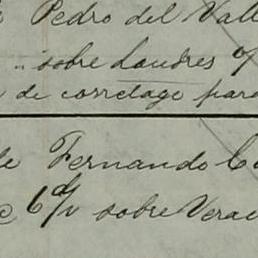 Pedro del Vall
sobre Londres
de corretage para
Fernando C
6 d/v sobre Vera